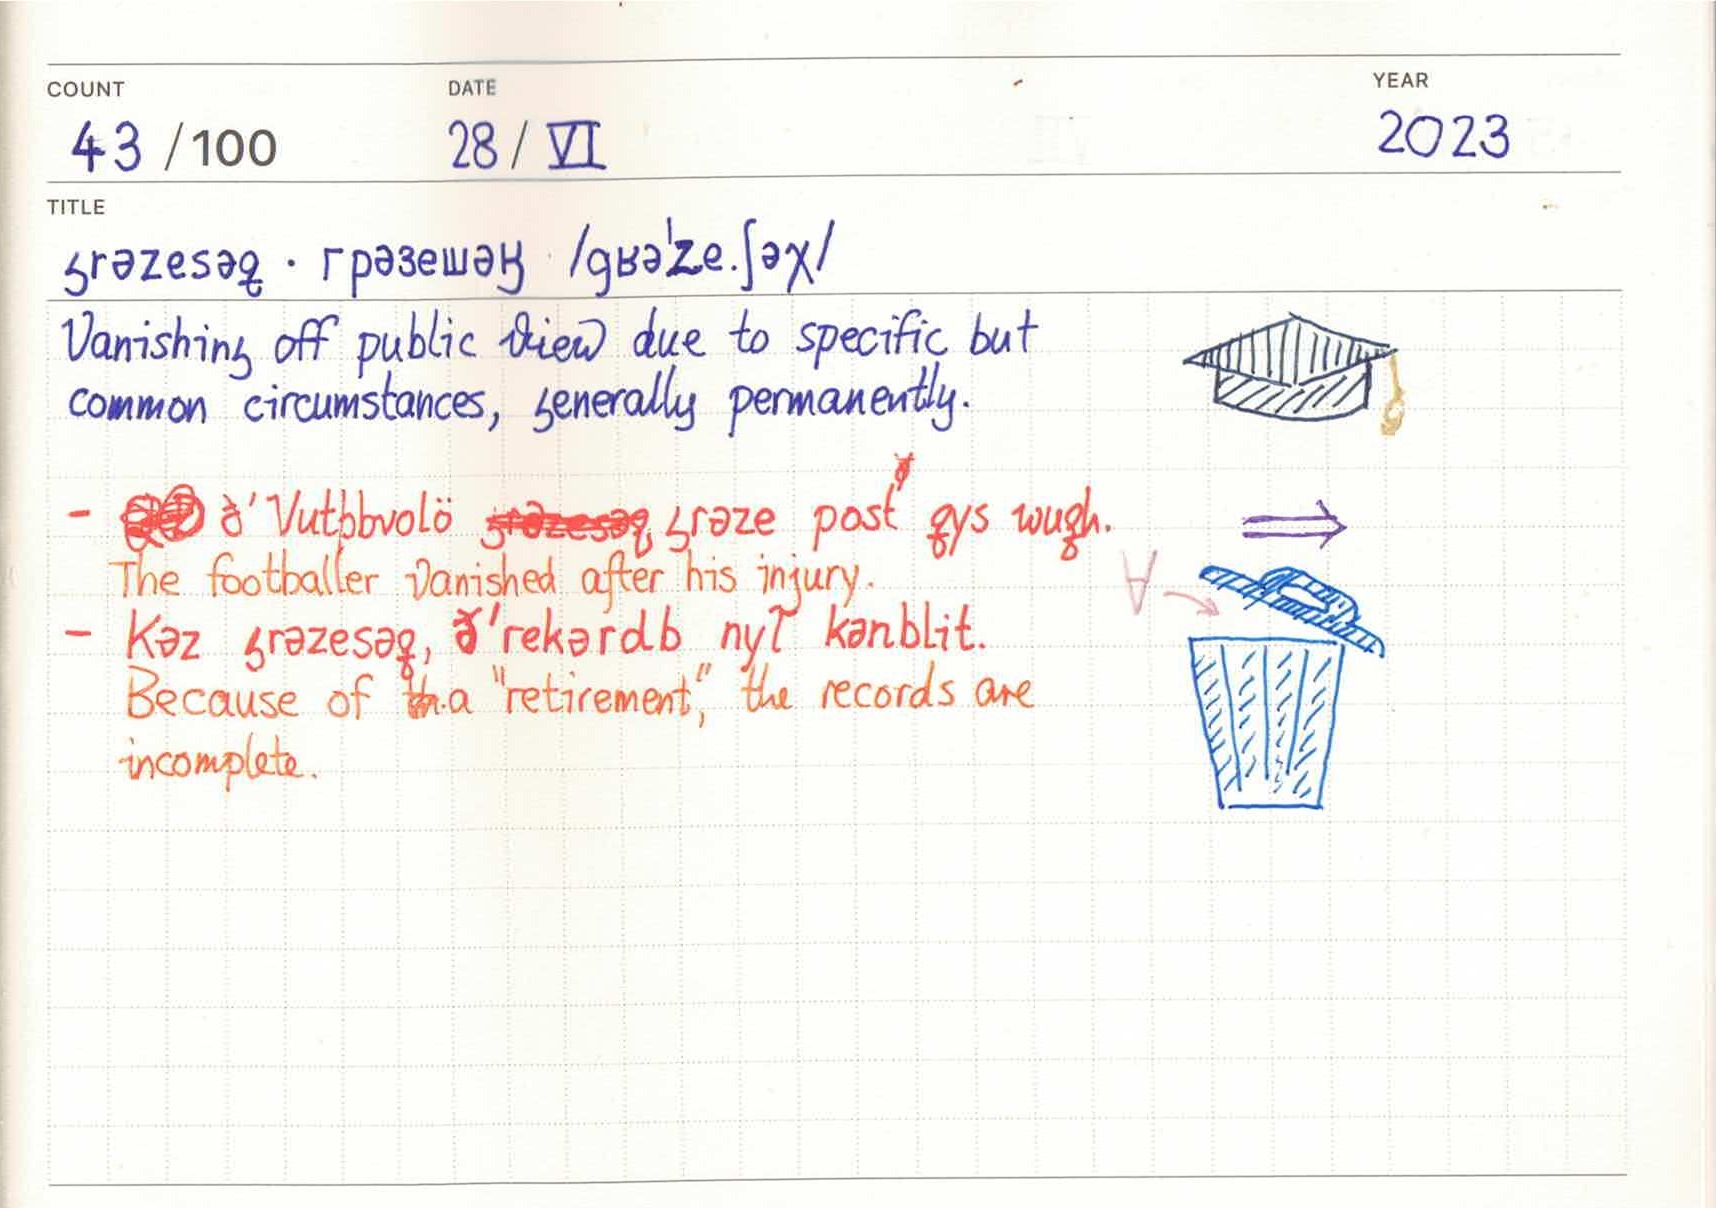 COUNT DATE YEAR
43 /100 28 / VI 2023
TITLE
grəzesəꝗ · грəзешəӄ /gʁə'ze.ʃəχ/
Vanishing off public view due to specific but
common circumstances, generally permanently.
- ð'Vutþbvolö grəze post ꝗys wugh.
The footballer vanished after his injury.
- Kəz grəzesəꝗ, ð'rekərdb nyl̃ kənblit.
Because of a "retirement," the records are
incomplete.
A